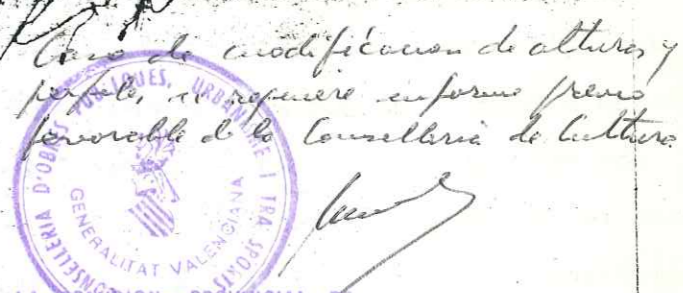 Caso de modificacion de alturas y
perfiles, se requiere informe previo
favorable de la Conselleria de Cultura
CONSELLERIA D'OBRES PUBLIQUES, URBANISME I TRANSPORTS
GENERALITAT VALENCIANA